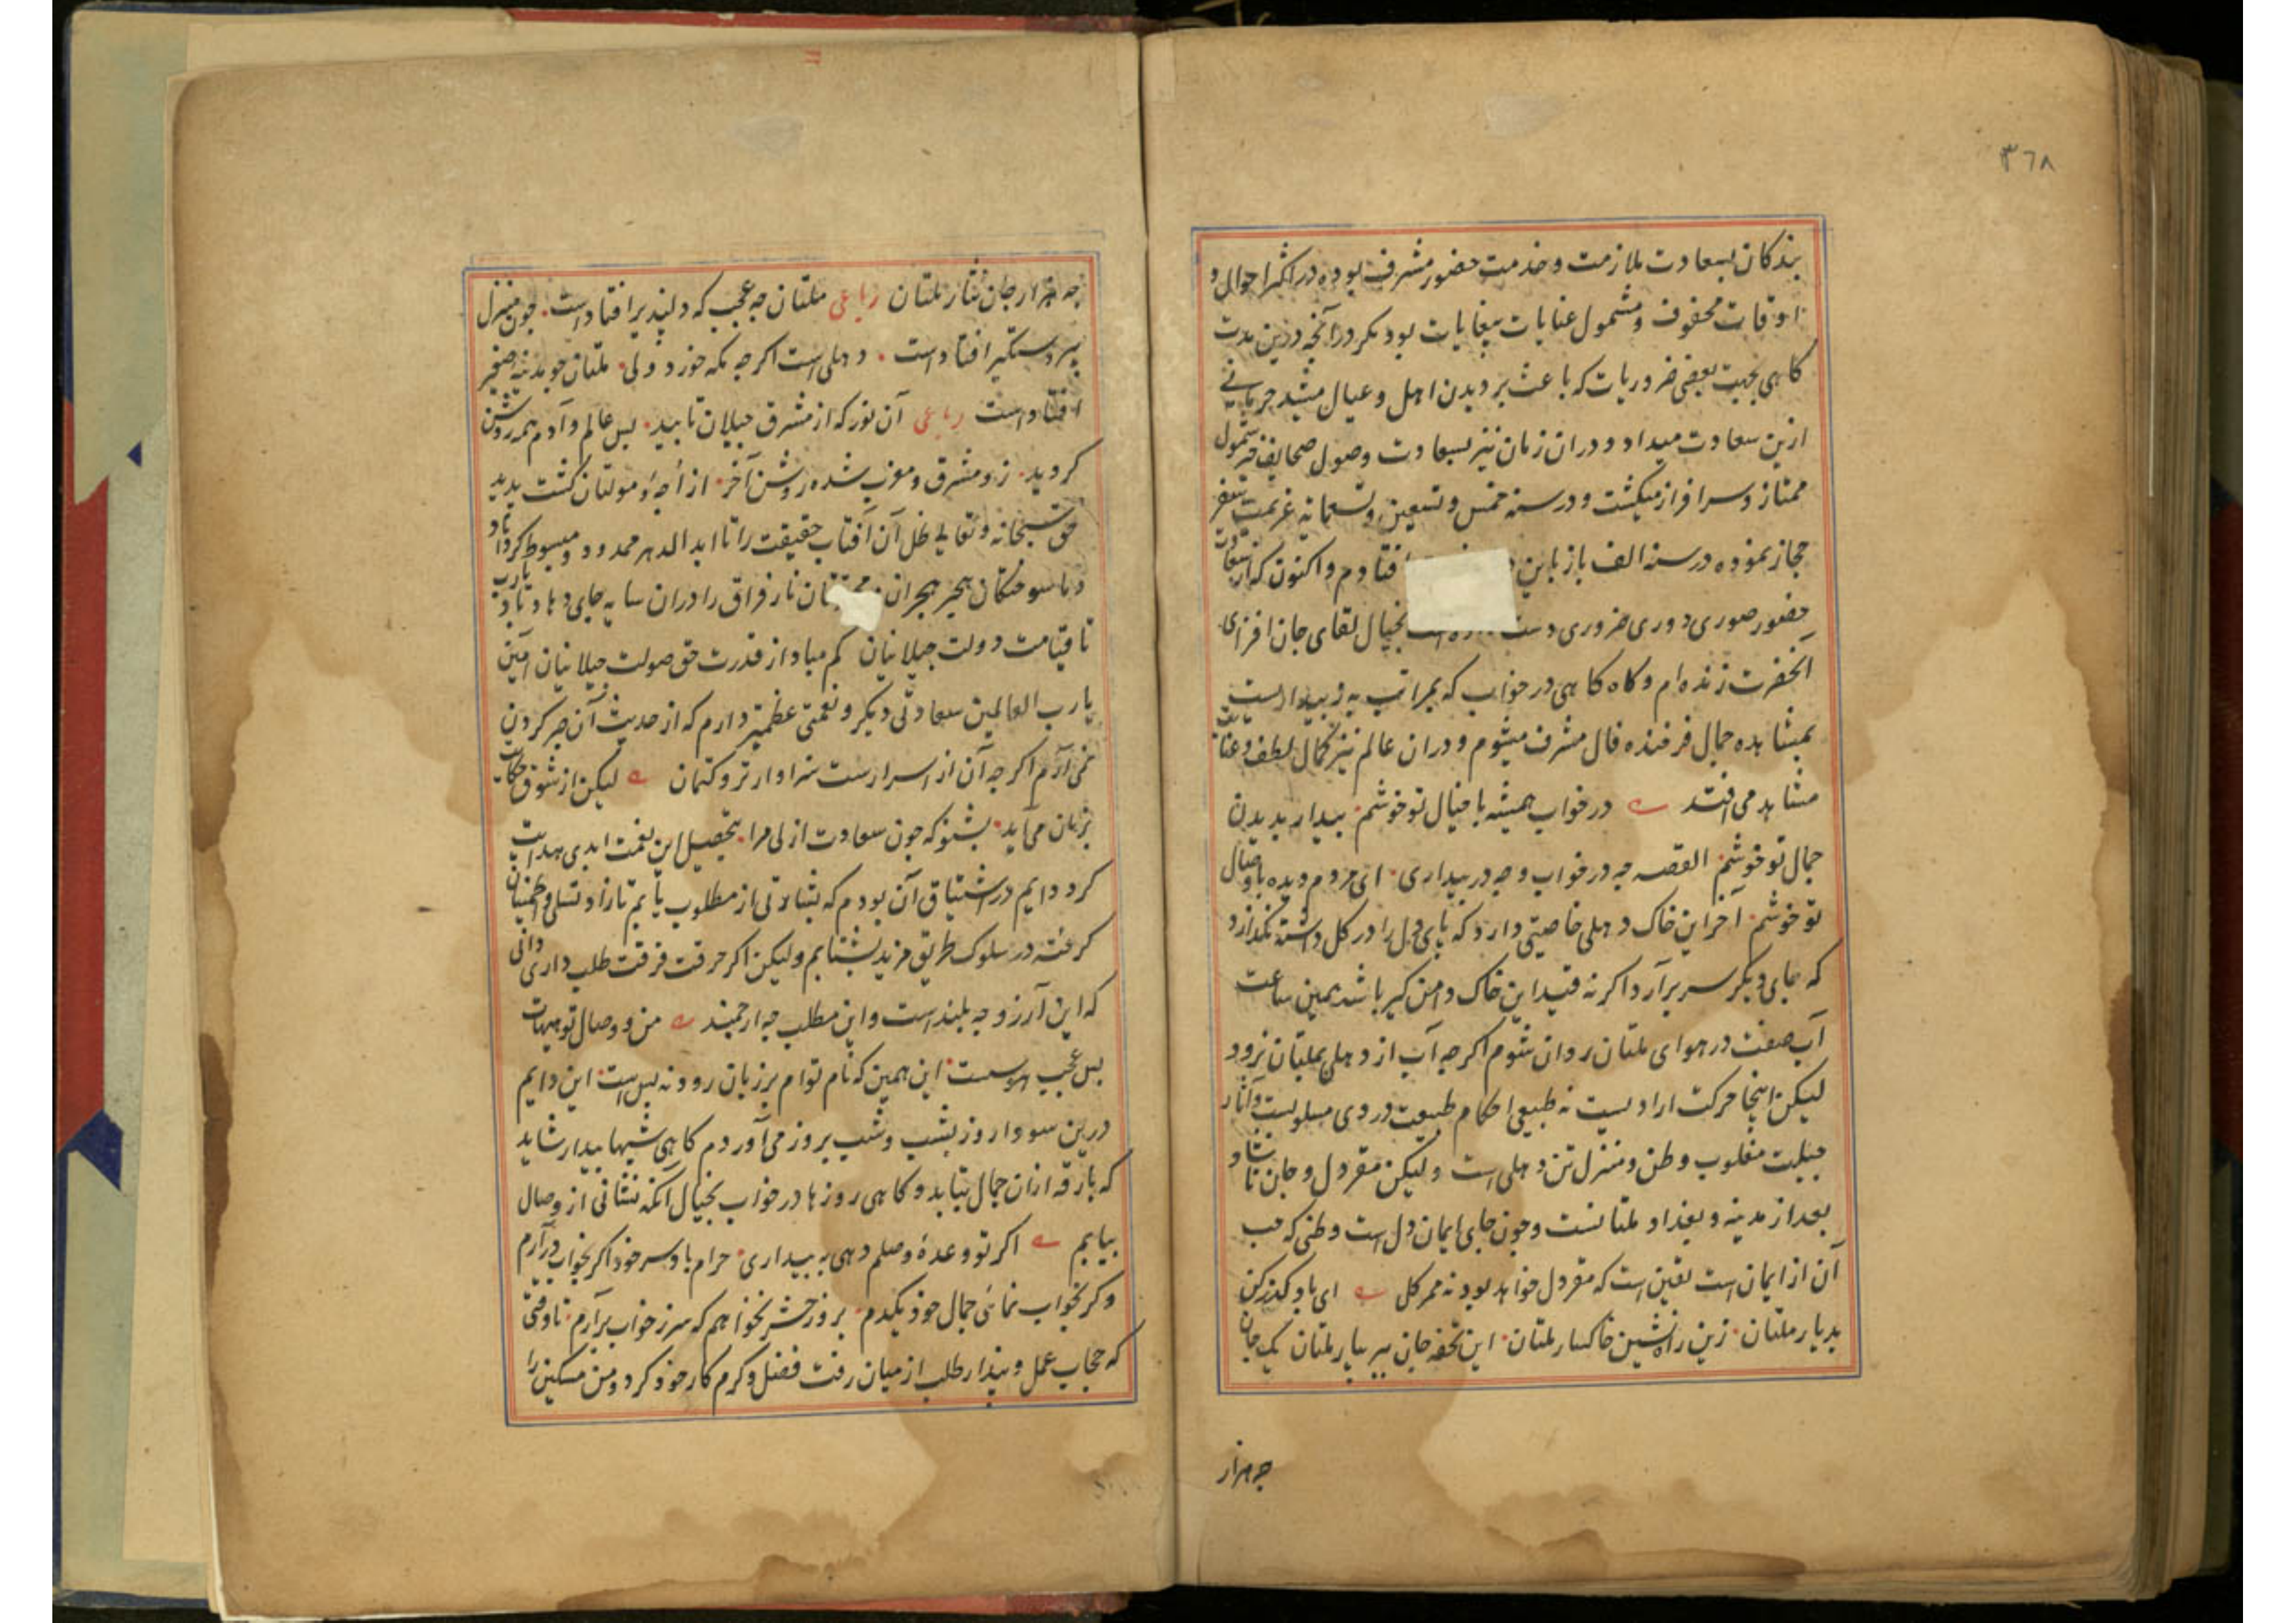 ٣٦٨
بندکان بسعادت ملازمت و خدمت حضور مشرف بوده در اکثر احوال و
اوقات محفوف و مشمول عنایات بیغایات بود مکر در آنچه درین مدت
کاهی بجهت بعضی ضروریات که باعث بر دیدن اهل و عیال میشد حرمانے
ازین سعادت میداد و دران زمان نیز بسعادت وصول صحایف شمول
ممتاز و سرافراز میکشت و در سنه خمس و تسعین و تسعمایه عزیمت سفر
حجاز نموده در سنه الف باز باین افتادم و اکنون که از سعادت
حضور صوری دوری ضروری دست بخیال لقای جان افزای
آنحضرت زنده‌ام و کاه کاهی در خواب که بمراتب به ز بیداریست
بمشاهده جمال فرخنده فال مشرف میشوم و دران عالم نیز کمال لطف و عنایت
مشاهد می افتد در خواب همیشه با خیال تو خوشم بیدار بدیدن
جمال تو خوشم القصه چه در خواب و چه در بیداری ای مردم دیده با وصال
تو خوشم آخر این خاک دهلی خاصیتی دارد که پای دل را در کل داشته نکذارد
که جای دیکر سر برآرد اکر نه قید این خاک دامن کیر باشد همین ساعت
آب صفت در هوای ملتان روان شوم اکرچه آب از دهلی بملتان نرود
لیکن اینجا حرکت ارادیست نه طبیعی احکام طبیعت در وی مسلوبست و آثار
جبلت مغلوب وطن و منزل تن دهلی است ولیکن مقر دل و جان
بعد از مدینه و بغداد ملتانست و چون جای ایمان دل است وطنی که حب
آن از ایمان است یقین است که مقر دل خواهد بود نه ممر کل ای باد کذر کن
بدیار ملتان زین راه نشین خاکسار ملتان این تحفه جان ببر بیار ملتان یک جان
چه هزار
چه هزار جان نثار ملتان رباعی ملتان چه عجب که دلپذیر افتاد است چون منزل
پیر دستکیر افتاد است دهلی است اکرچه مکه خورد ولی ملتان چو مدینه صغیر
افتاد است رباعی آن نور که از مشرق جیلان تابید بس عالم و آدم همه روشن
کردید زو مشرق و مغرب شده روشن آخر از اچه و مولتان کشت پدید
حق سبحانه و تعالی ظل آن آفتاب حقیقت را تا ابد الدهر ممدود و مبسوط کرداناد
و ما سوختکان هجیر هجران و نار فراق را دران سایه جای دهاد یارب
تا قیامت دولت جیلانیان کم مباد از قدرت حق صولت جیلانیان آمین
یا رب العالمین سعادتی دیکر و نعمتی عظمیتر دارم که از حدیث آن صبر کردن
نمی آرم اکرچه آن از اسرار ست سزاوار تر و کتمان لیکن از شوق حکایت
بزبان می آید بشنو که چون سعادت ازلی مرا بتحصیل این نعمت ابدی هدایت
کرد دایم در اشتیاق آن بودم که بشارتی از مطلوب یابم تا زاد تسلی و اطمینان
کرفته در سلوک طریق مزید بشتابم ولیکن اکر حرقت فرقت طلب داری دانی
که این آرزو چه بلند است و این مطلب چه ارجمند من و وصال تو هیهات
بس عجب هوسست این همین که نام توام بر زبان رود نه بس است این دایم
درین سودا روز بشب و شب بروز می آوردم کاهی شبها بیدار شاید
که بارقه ازان جمال بتابد و کاهی روزها در خواب بخیال آنکه نشانی از وصال
بیابم اکر تو وعدهٔ وصلم دهی به بیداری حرام باد سر خود اکر بخواب درآرم
وکر بخواب نمائی جمال خود یکدم بروز حشر نخواهم که سر ز خواب برآرم تا وقتی
که حجاب عمل و پندار طلب از میان رفت فضل و کرم کار خود کرد و من مسکین را